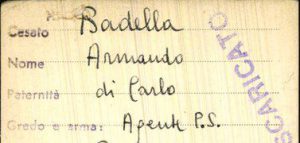 Cesato Badella
Nome Armando
Paternità di Carlo
Grado e arma: Agente P.S.
SCARICATO